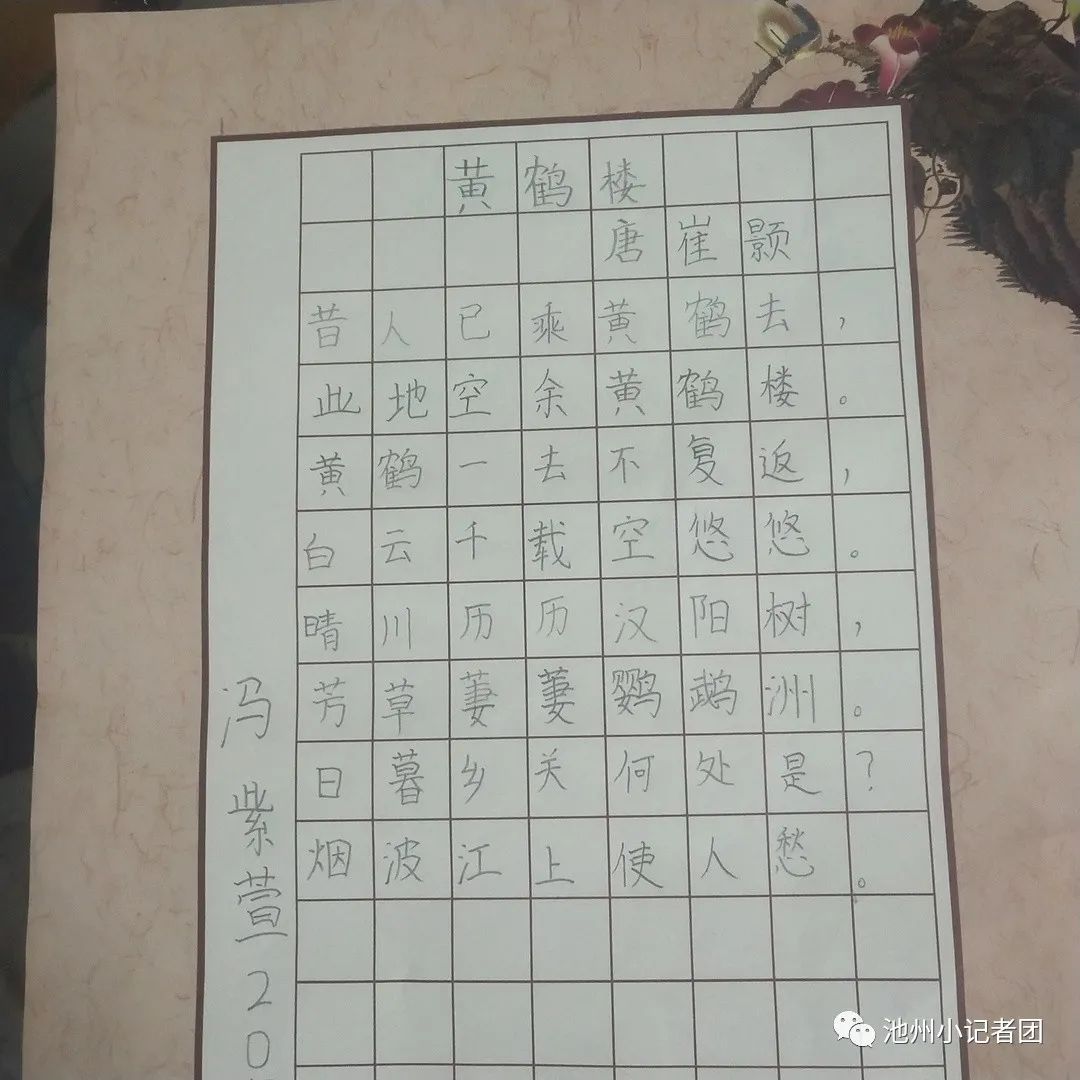 黄鹤楼
唐崔颢
昔人已乘黄鹤去，
此地空余黄鹤楼。
黄鹤一去不复返，
白云千载空悠悠。
晴川历历汉阳树，
芳草萋萋鹦鹉洲。
日暮乡关何处是？
烟波江上使人愁。
冯紫萱20
池州小记者团